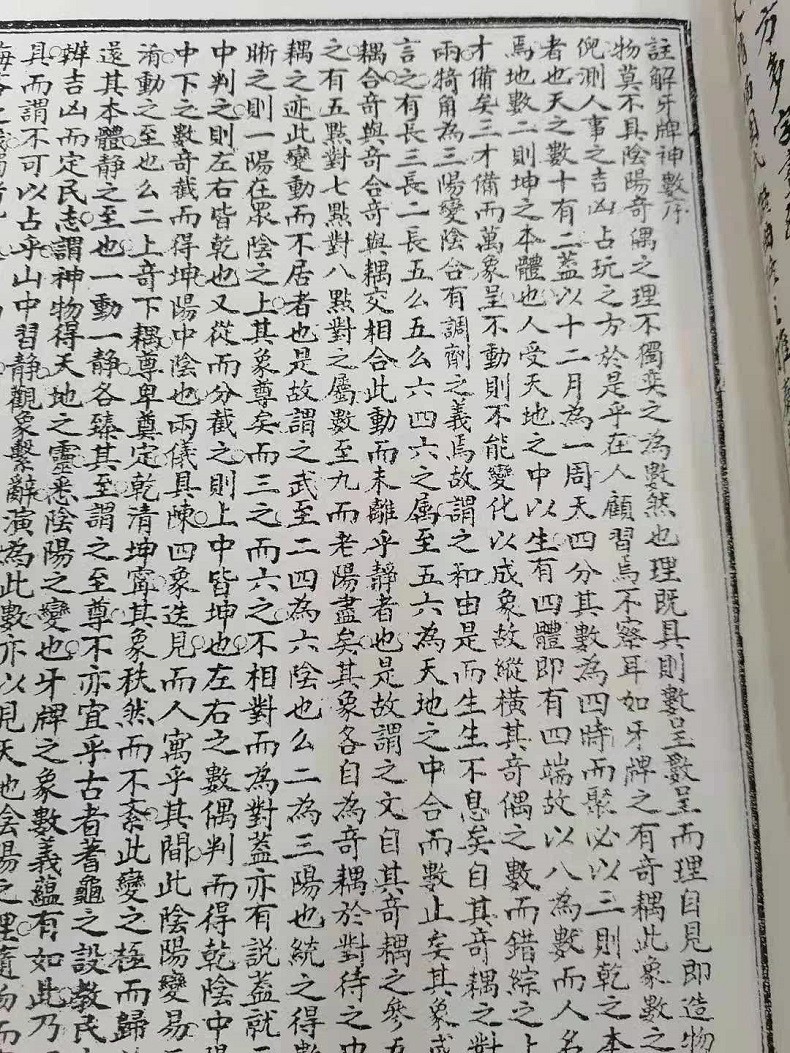 註解牙牌神數序
物莫不具陰陽奇偶之理不獨奕之為數然也理既具則數呈數呈而理自見即造物
倪測人事之吉凶占玩之方於是乎在人顧習焉不察耳如牙牌之有奇耦此象數之
者也天之數十有二蓋以十二月為一周天四分其數為四時而聚必以三則乾之本
焉地數二則坤之本體也人受天地之中以生有四體即有四端故以八為數而人名
才備矣三才備而萬象呈不動則不能變化以成象故縱橫其奇偶之數而錯綜之上
兩犄角為三陽變陰合有調劑之義焉故謂之和由是而生生不息矣自其奇耦之對
言之有長三長二長五么五么六四六之屬至五六為天地之中合而數止矣其象成
耦合奇與奇合奇與耦交相合此動而未離乎靜者也是故謂之文自其奇耦之參五
之有五點對七點對八點對之屬數至九而老陽盡矣其象各自為奇耦於對待之中
耦之迹此變動而不居者也是故謂之武至二四為六陰也么二為三陽也統之得數
晰之則一陽在眾陰之上其象尊矣而三之而六之不相對而為對蓋亦有說蓋就二
中判之則左右皆乾也又從而分截之則上中皆坤也左右之數偶判而得乾陰中陽
中下之數奇截而得坤陽中陰也兩儀具陳四象迭見而人寓乎其間此陰陽變易
淆動之至也么二上奇下耦尊卑奠定乾清坤甯其象秩然而不紊此變之極而歸
遂其本體靜之至也一動一靜各臻其至謂之至尊不亦宜乎古者蓍龜之設教民
辨吉凶而定民志謂神物得天地之靈悉陰陽之變也牙牌之象數義蘊有如此乃
具而謂不可以占乎山中習靜觀象繫辭演為此數亦以見天地陰陽之理隨物而